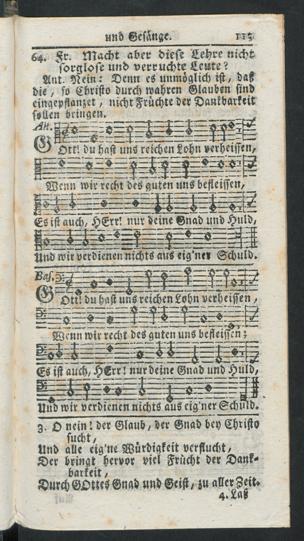 und Gesänge. 115
64. Fr. Macht aber diese Lehre nicht
sorglose und verruchte Leute?
Ant. Nein: Denn es unmöglich ist, daß
die, so Christo durch wahren Glauben sind
eingepflanzet, nicht Früchte der Dankbarkeit
sollen bringen.
Alt.
GOtt! du hast uns reichen Lohn verheissen,
Wenn wir recht des guten uns befleissen,
Es ist auch, HErr! nur deine Gnad und Huld,
Und wir verdienen nichts aus eig'ner Schuld.
Bas.
GOtt! du hast uns reichen Lohn verheissen,
Wenn wir recht des guten uns befleissen;
Es ist auch, HErr! nur deine Gnad und Huld,
Und wir verdienen nichts aus eig'ner Schuld.
3. O nein! der Glaub, der Gnad bey Christo
sucht,
Und alle eig'ne Würdigkeit verflucht,
Der bringt hervor viel Frücht der Dank-
barkeit,
Durch GOttes Gnad und Geist, zu aller Zeit.
4. Laß